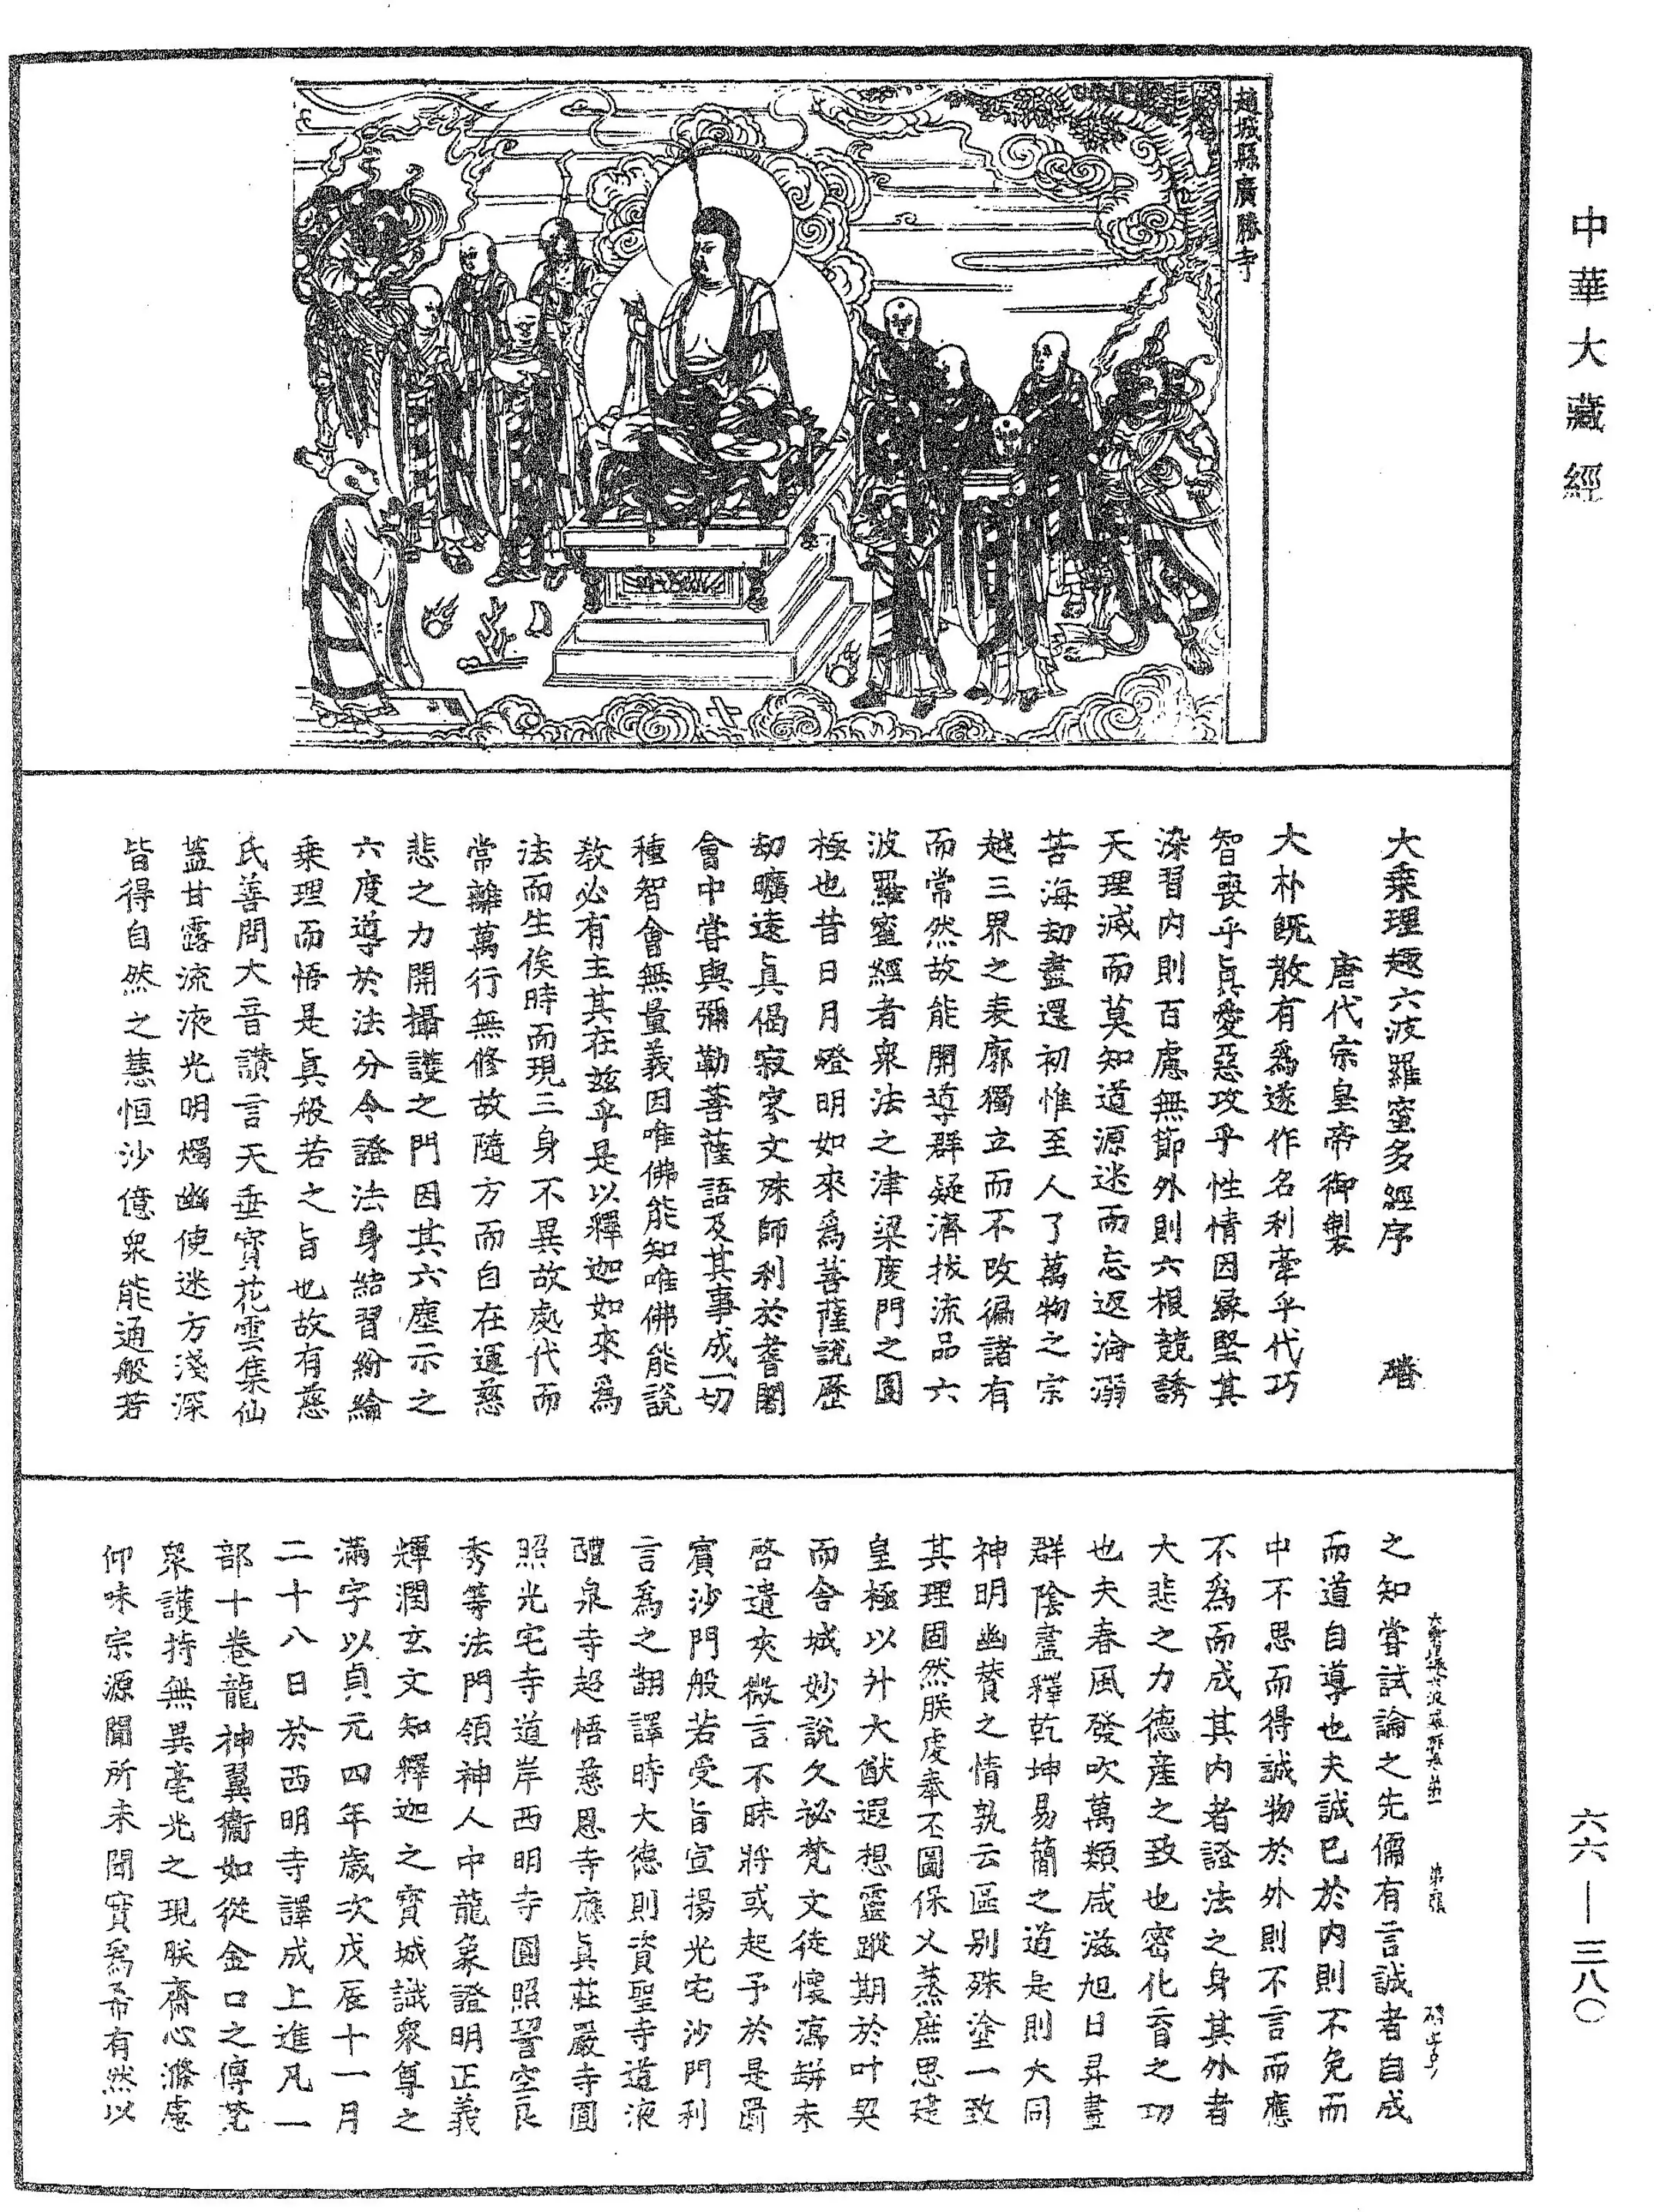 中華大藏經
趙城縣廣勝寺
大乘理趣六波羅蜜多經序 磻
唐代宗皇帝御製
大朴既散有爲遂作名利牽乎代巧
智喪乎真愛惡攻乎性情因緣堅其
染習内則百慮無節外則六根競誘
天理滅而莫知道源迷而忘返淪溺
苦海劫盡還初惟至人了萬物之宗
越三界之表廓獨立而不改徧諸有
而常然故能開導群疑濟拔流品六
波羅蜜經者衆法之津梁度門之圓
極也昔日月燈明如來爲菩薩說歷
劫曠遠真偈寂寥文殊師利於耆闍
會中嘗與彌勒菩薩語及其事成一切
種智會無量義因唯佛能知唯佛能說
教必有主其在兹乎是以釋迦如來爲
法而生俟時而現三身不異故處代而
常離萬行無修故隨方而自在運慈
悲之力開攝護之門因其六塵示之
六度導於法分令證法身結習紛綸
乘理而悟是真般若之旨也故有慈
氏善問大音讚言天垂寶花雲集仙
蓋甘露流液光明燭幽使迷方淺深
皆得自然之慧恒沙億衆能通般若
大乘理趣六波羅蜜經卷第一
之知嘗試論之先儒有言誠者自成
而道自導也夫誠已於内則不免而
中不思而得誠物於外則不言而應
不爲而成其内者證法之身其外者
大悲之力德産之致也密化育之功
也夫春風發吹萬類咸滋旭日昇晝
群陰盡釋乾坤易簡之道是則大同
神明幽贊之情孰云區别殊塗一致
其理固然朕虔奉丕圖保乂蒸庶思建
皇極以升大猷遐想靈蹤期於叶契
而舍城妙說久祕梵文徒懷瀉缾未
啓遺夾微言不昧將或起予於是罽
賓沙門般若受旨宣揚光宅沙門利
言爲之翻譯時大德則資聖寺道液
醴泉寺超悟慈恩寺應真莊嚴寺圓
照光宅寺道岸西明寺圓照詧空良
秀等法門領神人中龍象證明正義
輝潤玄文知釋迦之寶城識衆尊之
滿字以貞元四年歲次戊辰十一月
二十八日於西明寺譯成上進凡一
部十卷龍神翼衛如從金口之傳梵
衆護持無異毫光之現朕齋心滌慮
仰味宗源聞所未聞實爲希有然以
六六—三八〇